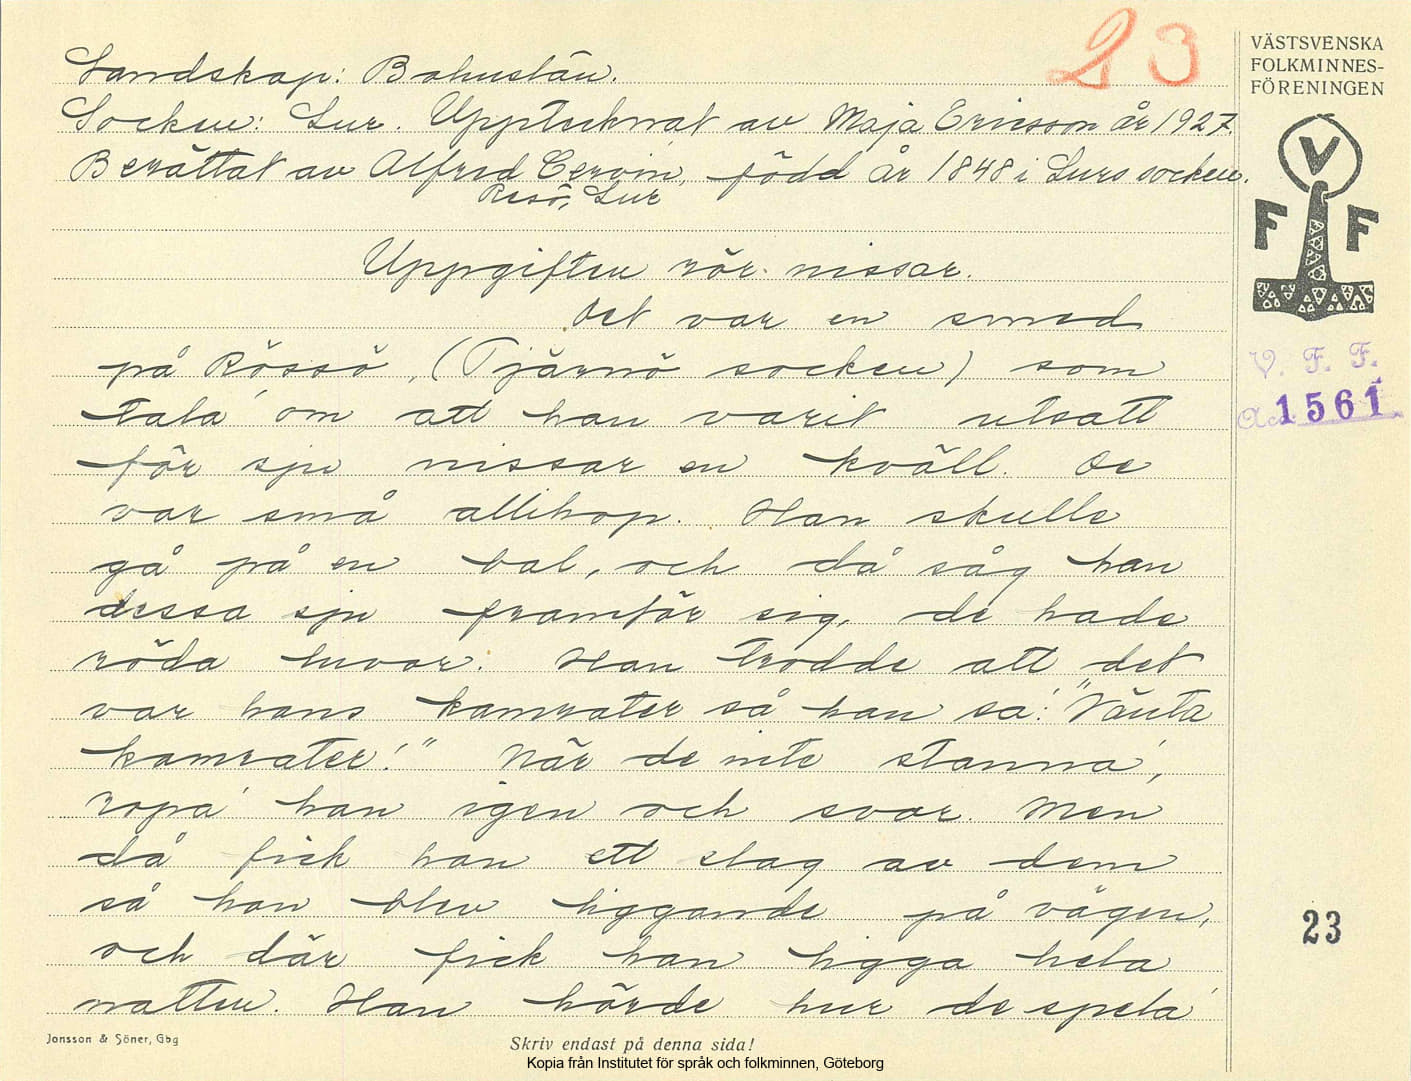 23
VÄSTSVENSKA
FOLKMINNES-
FÖRENINGEN
Landskap: Bohuslän.
Socken: Lur. Upptecknat av Maja Ericsson år 1927.
Berättat av Alfred Cervin, född år 1848 i Lurs socken.
Resö, Lur
V
F F
Uppgiften rör nissar.
Det var en smed
på Rössö, (Tjärnö socken) som
tala' om att han varit utsatt
för sju nissar en kväll. De
var små allihop. Han skulle
gå på en bal, och då såg han
dessa sju framför sig, de hade
röda huvor. Han trodde att det
var hans kamrater så han sa': "Vänta
kamrater!" När de inte stanna',
ropa' han igen och svor. Men
då fick han ett slag av dem
så han blev liggande på vägen,
och där fick han ligga hela
natten. Han hörde hur de spela'
V. F. F.
Acc. 1561
23
Jonsson & Söner, Gbg
Skriv endast på denna sida!
Kopia från Institutet för språk och folkminnen, Göteborg